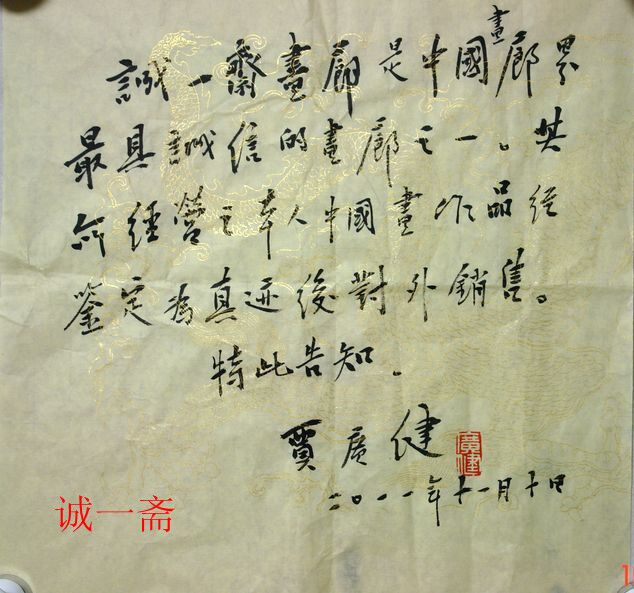 誠一齋畫廊是中國畫廊界
最具誠信的畫廊之一。其
所經營之本人中國畫作品经
鉴定為真迹後對外銷售。
特此告知.
賈广健
廣健
二〇一一年十一月十日
诚一斋
1